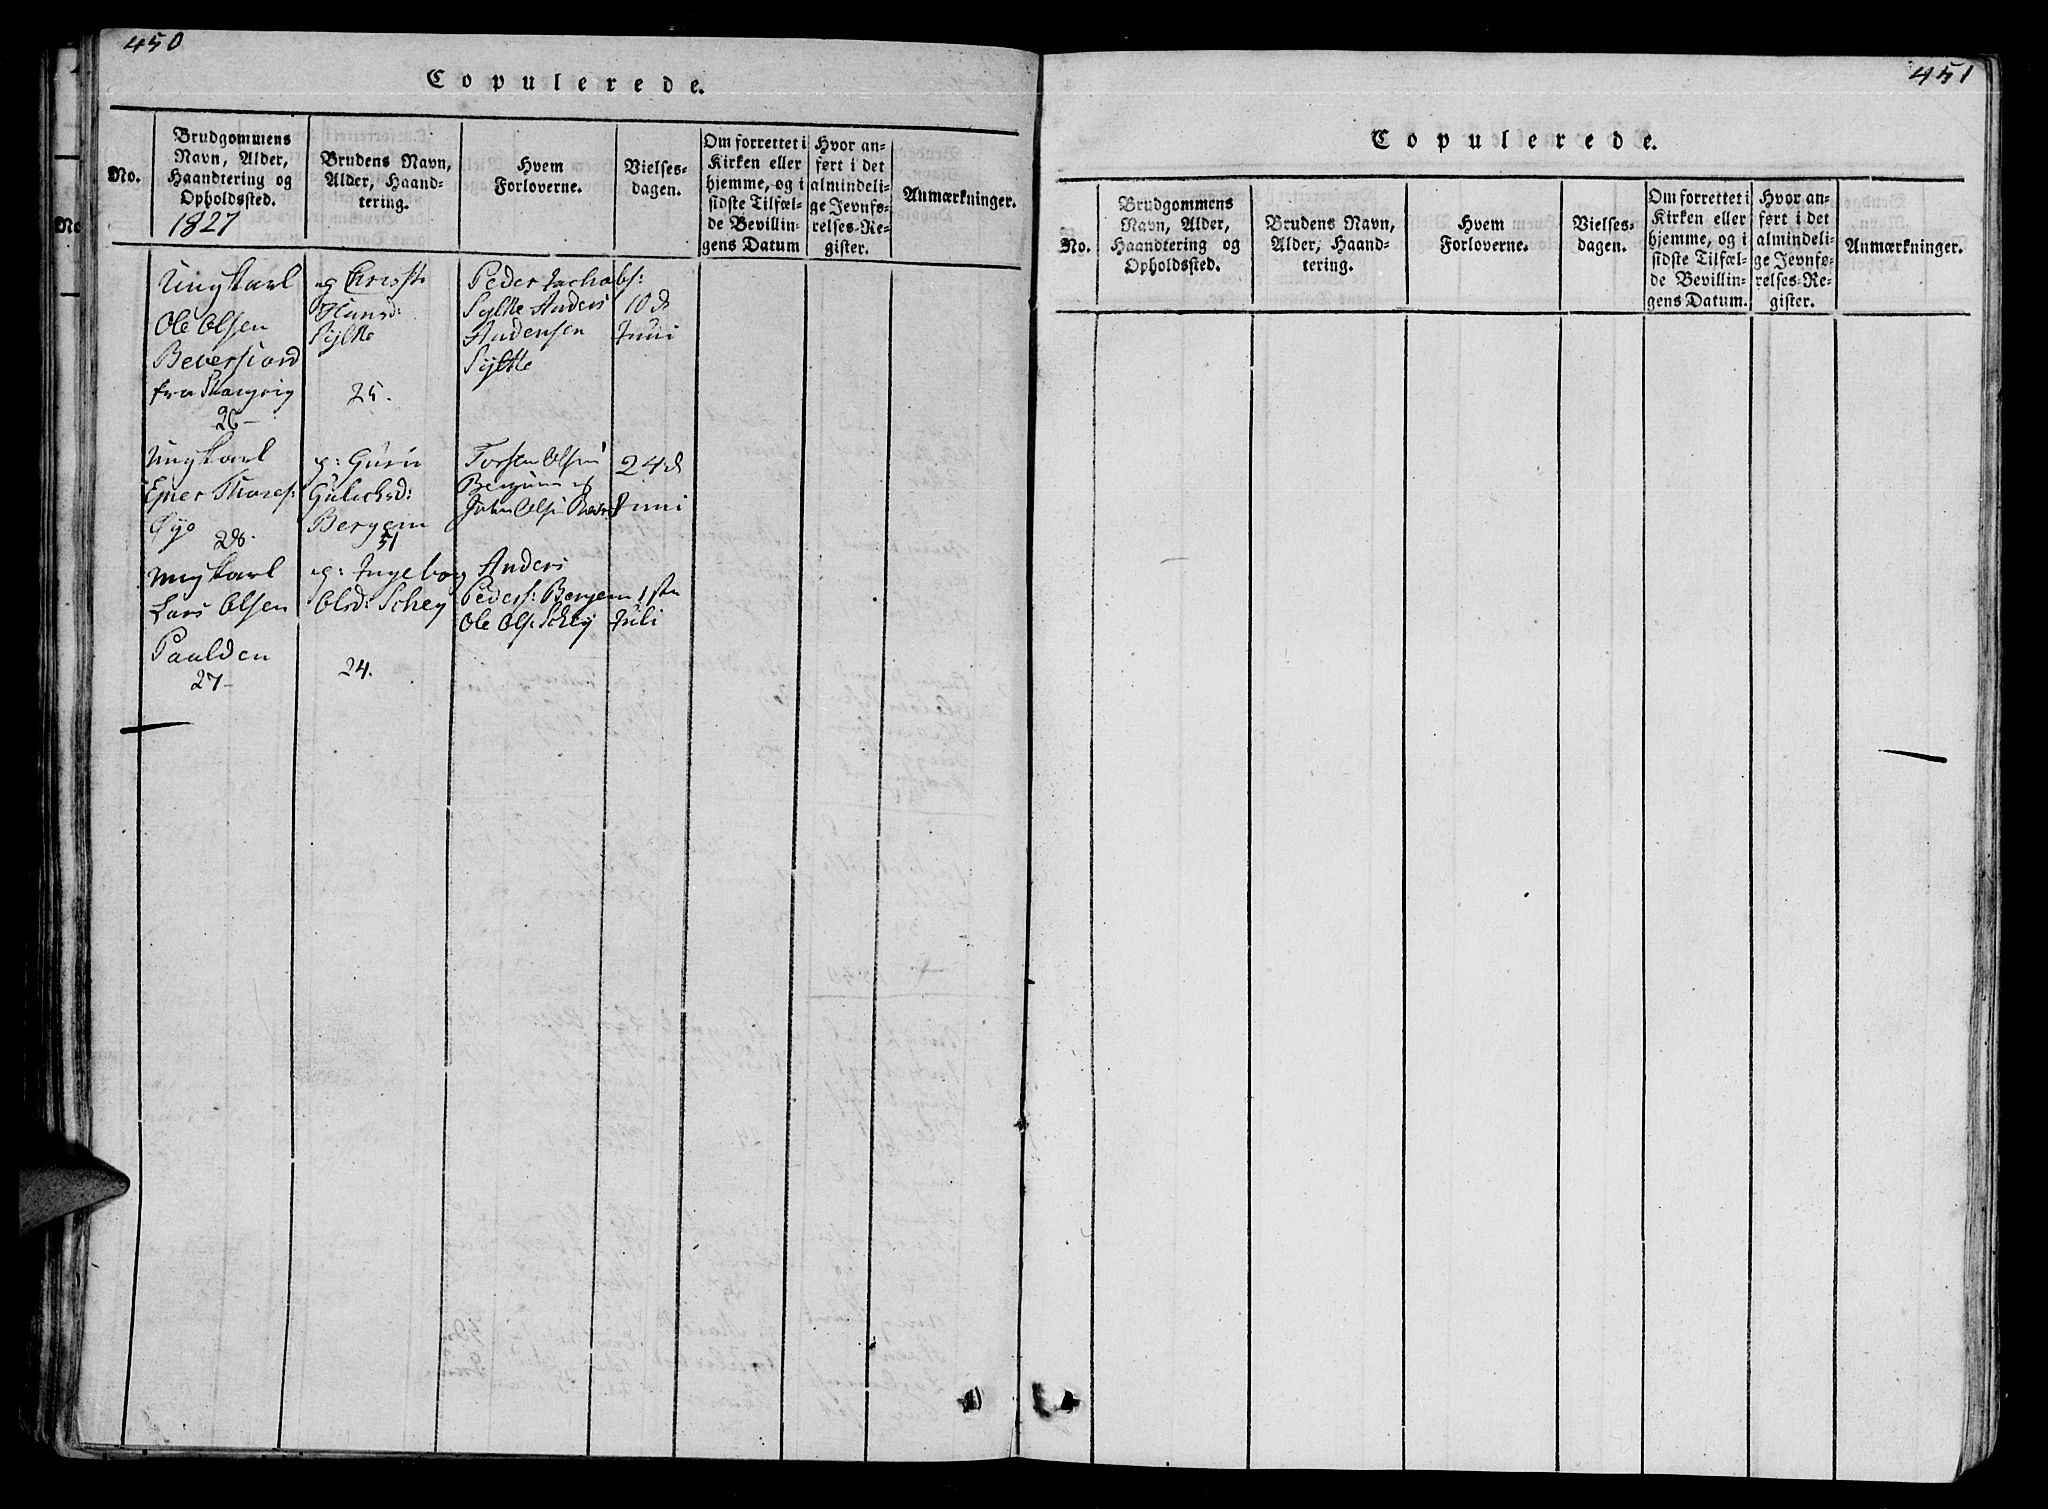 450
Copulerede.
No.
Brudgommens
Navn, Alder,
Haandtering og
Opholdssted.
1827
Brudens Navn,
Alder, Haand-
tering.
Hvem
Forloverne.
Vielses-
dagen.
Om forrettet i
Kirken eller
hjemme, og i
sidste Tilfæl-
de Bevillin-
gens Datum
Hvor an-
ført i det
almindeli-
ge Jevnfø-
relses-Re-
gister.
Anmærkninger.
Ungkarl
Ole Olsen
Beverfiord
fra Stangvig
26-
og
Hansd:
Sylte
25.
Peder Jachobs:
Sylte Anders
Andersen
Sylte
10d
Juni
Ungkarl
Ejner
Øye
28.
p: Guru
Gulichsd:
Bergem
51
Olsen
John Ols:
24d
Juni
Ungkarl
Lars Olsen
Paalden
27-
p: Ingeborg
Olsd: Schey
24.
Anders
Peders: Bergem
Ole Ols: Schey
1ste
Juli
No
451
Copulerede.
No.
Brudgommens
Navn, Alder,
Haandtering og
Opholdssted.
Brudens Navn,
Alder, Haand-
tering.
Hvem
Forloverne.
Vielses-
dagen.
Om forrettet i
Kirken eller
hjemme, og i
sidste Tilfæl-
de Bevillin-
gens Datum.
Hvor an-
ført i det
almindeli-
ge Jevnfø-
relses-Re-
gister.
Anmærkninger.